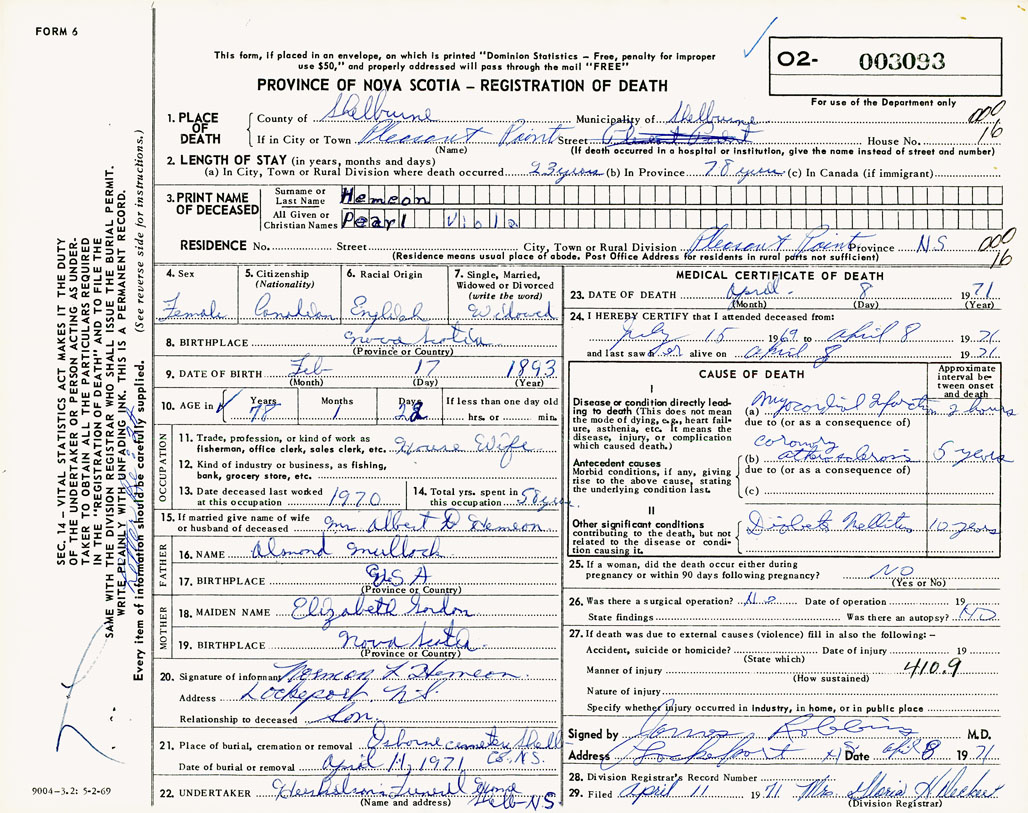 FORM 6
This form, if placed in an envelope, on which is printed "Dominion Statistics – Free, penalty for improper
use $50," and properly addressed will pass through the mail "FREE"
O2- 003093
For use of the Department only
PROVINCE OF NOVA SCOTIA – REGISTRATION OF DEATH
1. PLACE OF DEATH
County of Shelburne Municipality of Shelburne
000
16
If in City or Town Pleasant Point Street House No.
(Name) (If death occurred in a hospital or institution, give the name instead of street and number)
2. LENGTH OF STAY (in years, months and days)
(a) In City, Town or Rural Division where death occurred 23 years (b) In Province 78 years (c) In Canada (if immigrant)
3. PRINT NAME OF DECEASED
Surname or Last Name Hemeon
All Given or Christian Names Pearl Viola
RESIDENCE No. Street City, Town or Rural Division Pleasant Point Province NS
000
16
(Residence means usual place of abode. Post Office Address for residents in rural parts not sufficient)
4. Sex Female
5. Citizenship (Nationality) Canadian
6. Racial Origin English
7. Single, Married, Widowed or Divorced (write the word) Widowed
8. BIRTHPLACE Nova Scotia
(Province or Country)
9. DATE OF BIRTH Feb 17 1893
(Month) (Day) (Year)
10. AGE in Years 78 Months 1 Days 22 If less than one day old
hrs. or min.
OCCUPATION
11. Trade, profession, or kind of work as
fisherman, office clerk, sales clerk, etc. House Wife
12. Kind of industry or business, as fishing,
bank, grocery store, etc.
13. Date deceased last worked
at this occupation 1970
14. Total yrs. spent in
this occupation 58 years
15. If married give name of wife
or husband of deceased Mr. Albert D Hemeon
FATHER
16. NAME Almond Mullock
17. BIRTHPLACE USA
(Province or Country)
MOTHER
18. MAIDEN NAME Elizabeth Gordon
19. BIRTHPLACE Nova Scotia
(Province or Country)
20. Signature of informant Norman L Hemeon
Address Lockeport N.S.
Relationship to deceased Son
21. Place of burial, cremation or removal Osborne cemetery Shelb
Co. N.S.
Date of burial or removal April 11, 1971
22. UNDERTAKER Funeral Home
Shelb-NS
(Name and address)
MEDICAL CERTIFICATE OF DEATH
23. DATE OF DEATH April 8 1971
(Month) (Day) (Year)
24. I HEREBY CERTIFY that I attended deceased from:
July 15 1969 to April 8 1971
and last saw her alive on April 8 1971
CAUSE OF DEATH
Approximate interval between onset and death
I
Disease or condition directly leading to death (This does not mean the mode of dying, e.g., heart failure, asthenia, etc. It means the disease, injury, or complication which caused death.)
(a) Myocardial Infarction 2 hours
due to (or as a consequence of)
Antecedent causes
Morbid conditions, if any, giving rise to the above cause, stating the underlying condition last.
coronary
(b) atherosclerosis 5 years
due to (or as a consequence of)
(c)
II
Other significant conditions
contributing to the death, but not related to the disease or condition causing it.
Diabetes Mellitus 10 years
25. If a woman, did the death occur either during
pregnancy or within 90 days following pregnancy? NO
(Yes or No)
26. Was there a surgical operation? No Date of operation 19
State findings Was there an autopsy? NO
27. If death was due to external causes (violence) fill in also the following: –
Accident, suicide or homicide? Date of injury 19
(State which)
Manner of injury 410.9
(How sustained)
Nature of injury
Specify whether injury occurred in industry, in home, or in public place
Signed by Robbins M.D.
Address Lockeport N.S. Date April 8 1971
28. Division Registrar's Record Number
29. Filed April 11 1971 Mrs Gloria H Deckert
(Division Registrar)
SEC. 14 – VITAL STATISTICS ACT MAKES IT THE DUTY
OF THE UNDERTAKER OR PERSON ACTING AS UNDER-
TAKER TO OBTAIN ALL THE PARTICULARS REQUIRED
IN THE "REGISTRATION OF DEATH" AND TO FILE THE
SAME WITH THE DIVISION REGISTRAR WHO SHALL ISSUE THE BURIAL PERMIT.
WRITE PLAINLY WITH UNFADING INK. THIS IS A PERMANENT RECORD.
Every item of information should be carefully supplied. (See reverse side for instructions.)
9004-3.2: 5-2-69